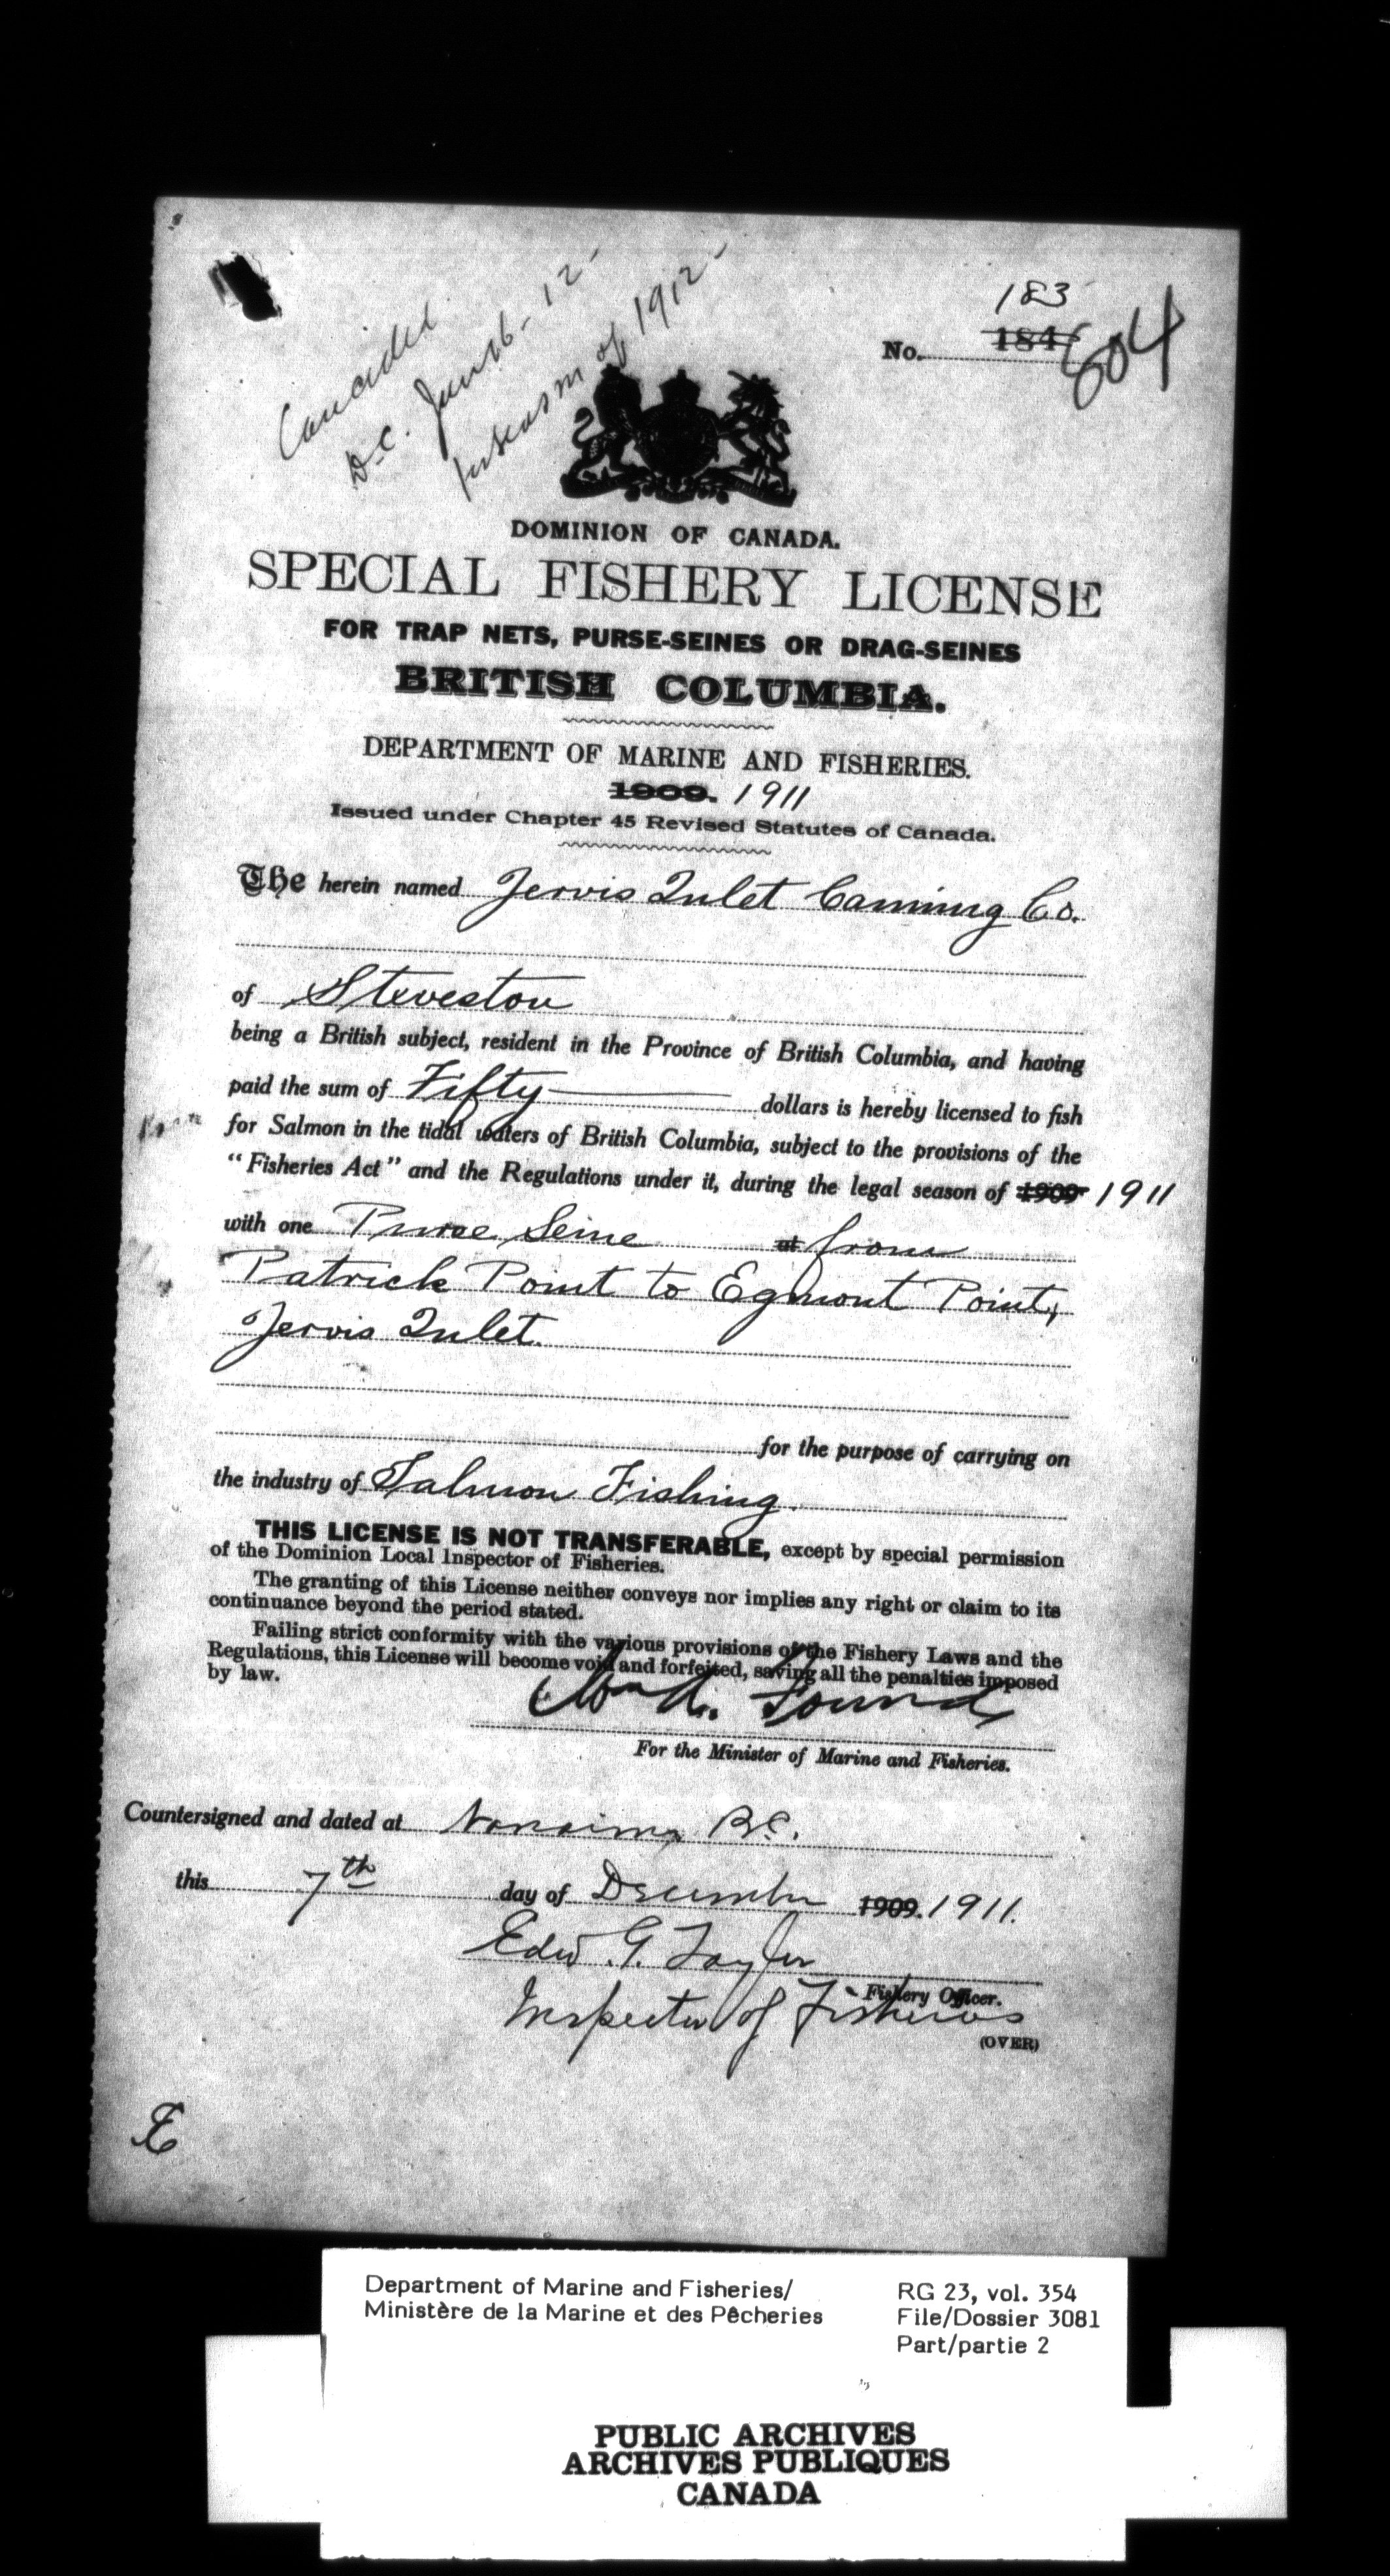 Cancelled
D.C. Jun 6-12-
for season of 1912-
183
No. 184
604
DOMINION OF CANADA.
SPECIAL FISHERY LICENSE
FOR TRAP NETS, PURSE-SEINES OR DRAG-SEINES
BRITISH COLUMBIA.
DEPARTMENT OF MARINE AND FISHERIES.
1909. 1911
Issued under Chapter 45 Revised Statutes of Canada.
The herein named Jervis Inlet Canning Co.
of Steveston
being a British subject, resident in the Province of British Columbia, and having
paid the sum of Fifty dollars is hereby licensed to fish
for Salmon in the tidal waters of British Columbia, subject to the provisions of the
"Fisheries Act" and the Regulations under it, during the legal season of 1909 1911
with one Purse Seine at from
Patrick Point to Egmont Point,
Jervis Inlet.
for the purpose of carrying on
the industry of Salmon Fishing.
THIS LICENSE IS NOT TRANSFERABLE, except by special permission
of the Dominion Local Inspector of Fisheries.
The granting of this License neither conveys nor implies any right or claim to its
continuance beyond the period stated.
Failing strict conformity with the various provisions of the Fishery Laws and the
Regulations, this License will become void and forfeited, saving all the penalties imposed
by law.
Found
For the Minister of Marine and Fisheries.
Countersigned and dated at Nanaimo B.C.
this 7th day of December 1909. 1911.
Edw. G. Taylor
Fishery Officer.
Inspector of Fisheries
(OVER)
Department of Marine and Fisheries/ RG 23, vol. 354
Ministère de la Marine et des Pêcheries File/Dossier 3081
Part/partie 2
PUBLIC ARCHIVES
ARCHIVES PUBLIQUES
CANADA